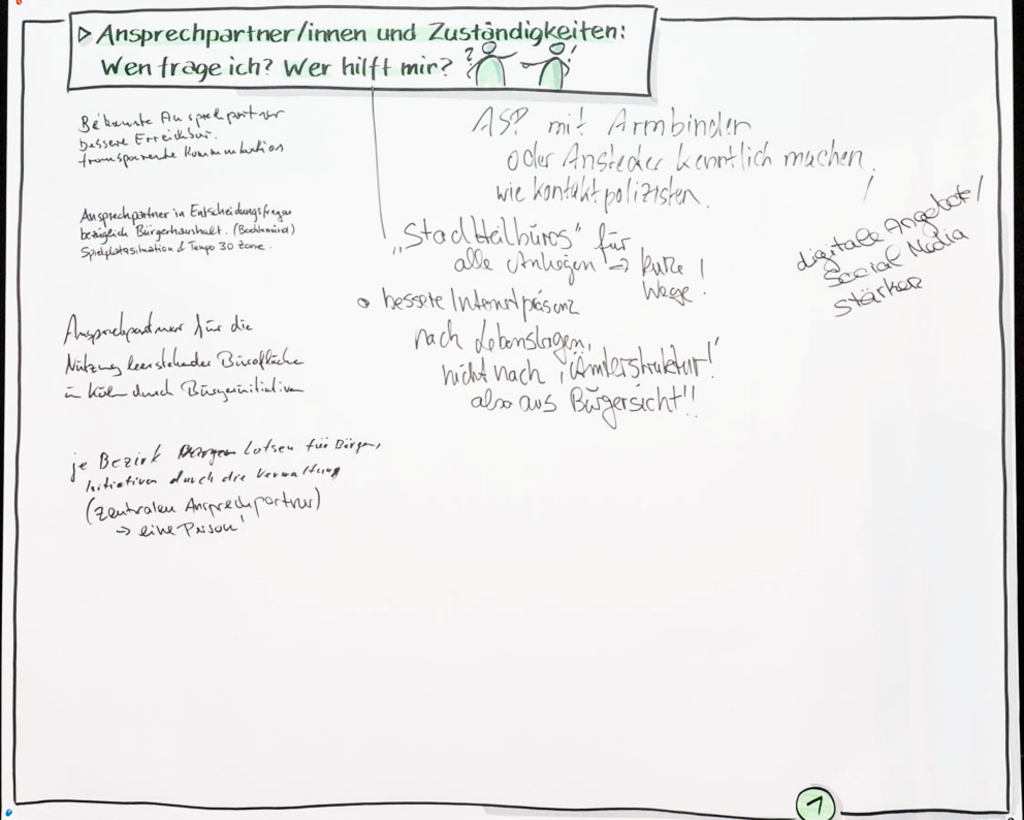 ▷ Ansprechpartner/innen und Zuständigkeiten:
Wen frage ich? Wer hilft mir?
? !
Bekannte Ansprechpartner
bessere Erreichbar.
transparente Kommunikation
Ansprechpartner in Entscheidungsfragen
bezüglich Bürgerhaushalt.
Spielplatzsituation & Tempo 30 Zone.
Ansprechpartner für die
Nutzung leerstehender Bürofläche
in Köln durch Bürgerinitiativen
je Bezirk Lotsen für Bürger,
Initiativen durch die Verwaltung
(zentralen Ansprechpartner)
→ eine Person!
ASP mit Armbinden
oder Anstecker kenntlich machen.
wie Kontaktpolizisten.
"Stadtteilbüros" für
alle Anliegen → kurze
Wege!
• bessere Internetpräsenz
nach Lebenslagen,
nicht nach "Ämterstruktur!"
also aus Bürgersicht!!
digitale Angebote/
Social Media
stärken
1